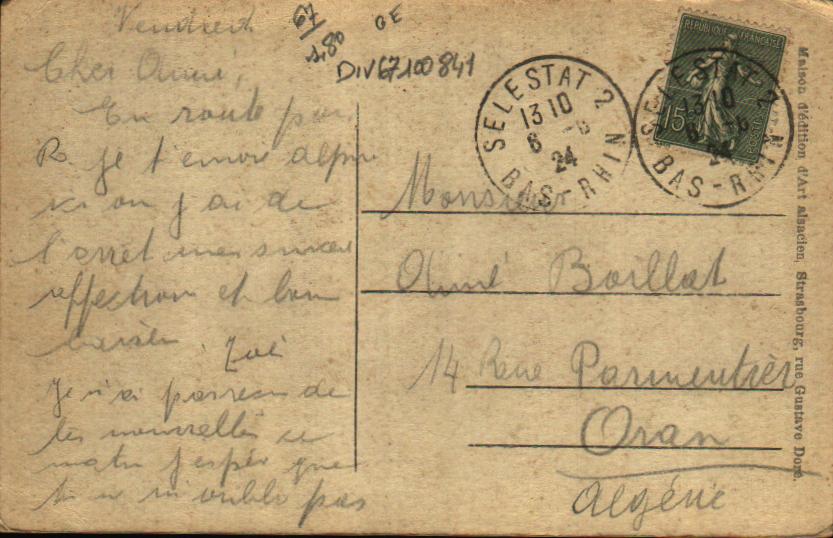 Vendredi
Cher Aimé,
En route pour
R. je t'envoie
ici où j'ai de
l'arrêt mes sincères
affections et bons
baisers. Zoé
Je n'ai pas reçu de
tes nouvelles ce
matin j'espère que
tu ne m'oublie pas
67/
OE
DIV67100841
SELESTAT 2
13 10
6 -6
24
BAS-RHIN
REPUBLIQUE FRANÇAISE
15
SELESTAT 2
13 10
6 -6
24
BAS-RHIN
Monsieur
Aimé Boillat
14 Rue Parmentier
Oran
Algérie
Maison d'édition d'Art alsacien, Strasbourg, rue Gustave Doré.